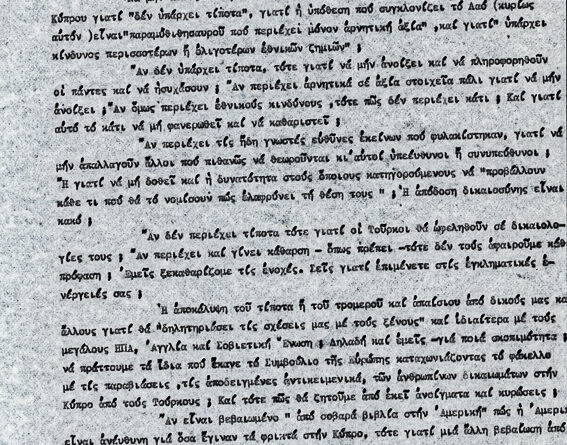 Κύπρου γιατί "δέν ὑπάρχει τίποτα", γιατί ἡ ὑπόθεση πού συγκλονίζει τό Λαό (κυρίως
αὐτόν )εἶναι"παραμύθιθησαυροῦ πού περιέχει μόνον ἀρνητική ἀξία" ,καί γιατί" ὑπάρχει
κίνδυνος περισσοτέρων ἤ ὀλιγοτέρων ἐθνικῶν ζημιῶν" ;
"Αν δέν ὑπάρχει τίποτα, τότε γιατί νά μήν ἀνοίξει καί νά πληροφορηθοῦν
οἱ πάντες καί νά ἡσυχάσουν ; "Αν περιέχει ἀρνητικά σέ ἀξία στοιχεῖα πάλι γιατί νά μήν
ἀνοίξει ;"Αν ὅμως περιέχει ἐθνικούς κινδύνους ,τότε πῶς δέν περιέχει κάτι ; Καί γιατί
αὐτό τό κάτι νά μή φανερωθεῖ καί νά καθαριστεῖ ;
"Αν περιέχει τίς ἤδη γνωστές εὐθύνες ἐκείνων πού φυλακίστηκαν, γιατί νά
μήν ἀπαλλαγοῦν ἄλλοι πού πιθανῶς νά θεωροῦνται κι'αὐτοί ὑπεύθυνοι ἤ συνυπεύθυνοι ;
"Η γιατί νά μή δοθεῖ καί ἡ δυνατότητα στούς ὅποιους κατηγορούμενους νά "προβάλλουν
κάθε τι πού θά τό νομίσουν πώς ἐλαφρύνει τή θέση τους " ; Ἡ ἀπόδοση δικαιοσύνης εἶναι
κακό ;
"Αν δέν περιέχει τίποτα τότε γιατί οἱ Τοῦρκοι θά ὠφεληθοῦν σέ δικαιολο-
γίες τους ; "Αν περιέχει καί γίνει κάθαρση - ὅπως πρέπει -τότε δέν τούς ἀφαιροῦμε κάθ
πρόφαση ; Ἐμεῖς ξεκαθαρίζομε τίς ἐνοχές. Σεῖς γιατί ἐπιμένετε στίς ἐγκληματικές ἐ-
νέργειές σας ;
Ἡ ἀποκάλυψη τοῦ τίποτα ἤ τοῦ τρομεροῦ καί ἀπαίσιου ἀπό δικούς μας κα
ἄλλους γιατί θά "δηλητηριάσει τίς σχέσεις μας μέ τούς ξένους" καί ἰδιαίτερα μέ τούς
μεγάλους ΗΠΑ, Ἀγγλία καί Σοβιετική Ἕνωση ; Δηλαδή καί ἐμεῖς -γιά ποιά σκοπιμότητα ;
νά πράττουμε τά ἴδια πού ἔκανε τό Συμβούλιο τῆς Εὐρώπης καταχωνιάζοντας τό φάκελλο
μέ τίς παραβιάσεις ,τίς ἀποδειγμένες ἀντικειμενικά, τῶν ἀνθρωπίνων δικαιωμάτων στήν
Κύπρο ἀπό τούς Τούρκους ; Καί τότε πῶς θά ζητοῦμε ἀπό ἐκεῖ ἀνοίγματα καί κυρώσεις ;
"Αν εἶναι βεβαιωμένο " ἀπό σοβαρά βιβλία στήν 'Αμερική" πώς ἡ 'Αμερι
εἶναι ἀνεύθυνη γιά ὅσα ἔγιναν τά φρικτά στήν Κύπρο, τότε γιατί μιά ἄλλη βεβαίωση ἀπό